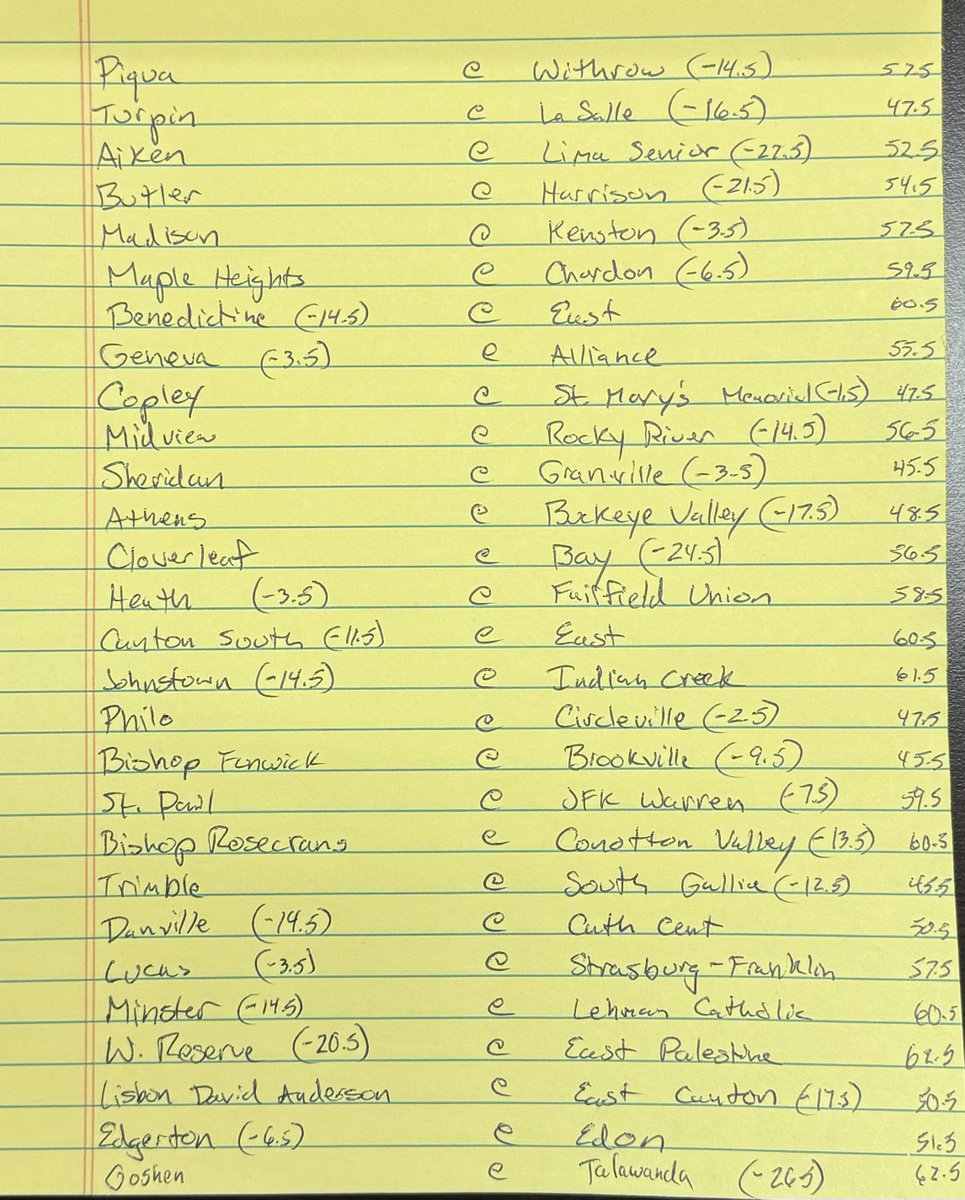 Piqua @ Withrow (-14.5) 57.5
Turpin @ La Salle (-16.5) 47.5
Aiken @ Lima Senior (-27.5) 52.5
Butler @ Harrison (-21.5) 54.5
Madison @ Kenston (-3.5) 57.5
Maple Heights @ Chardon (-6.5) 59.5
Benedictine (-14.5) @ East 60.5
Geneva (-3.5) @ Alliance 55.5
Copley @ St. Mary's Memorial (-1.5) 47.5
Midview @ Rocky River (-14.5) 56.5
Sheridan @ Granville (-3.5) 45.5
Athens @ Buckeye Valley (-17.5) 48.5
Cloverleaf @ Bay (-24.5) 56.5
Heath (-3.5) @ Fairfield Union 58.5
Canton South (-11.5) @ East 60.5
Johnstown (-14.5) @ Indian Creek 61.5
Philo @ Circleville (-2.5) 47.5
Bishop Fenwick @ Brookville (-9.5) 45.5
St. Paul @ JFK Warren (-7.5) 59.5
Bishop Rosecrans @ Conotton Valley (-13.5) 60.5
Trimble @ South Gallia (-12.5) 45.5
Danville (-14.5) @ Cath Cent 50.5
Lucas (-3.5) @ Strasburg-Franklin 57.5
Minster (-14.5) @ Lehman Catholic 60.5
W. Reserve (-20.5) @ East Palestine 62.5
Lisbon David Anderson @ East Canton (-17.5) 50.5
Edgerton (-6.5) @ Edon 51.5
Goshen @ Talawanda (-26.5) 62.5